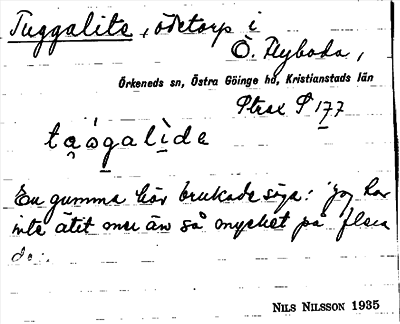 Tuggalite, ödetorp i
Ö. Flyboda,
Örkeneds sn, Östra Göinge hd, Kristianstads län
P 177
En gumma här brukade säga: jag har
inte ätit mer än så mycket på flera
da:.
NILS NILSSON 1935